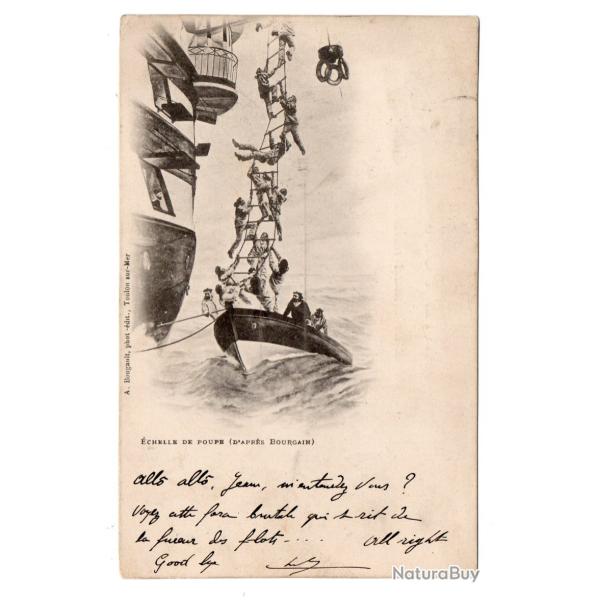 A. Bougault, phot.-édit., Toulon-sur-Mer
ÉCHELLE DE POUPE (D'APRÈS BOURGAIN)
allo allo, Jeam, m'entendez vous ?
Voyez cette force brutale qui se rit de
la fureur des flots - . . . all right
Good bye
NaturaBuy